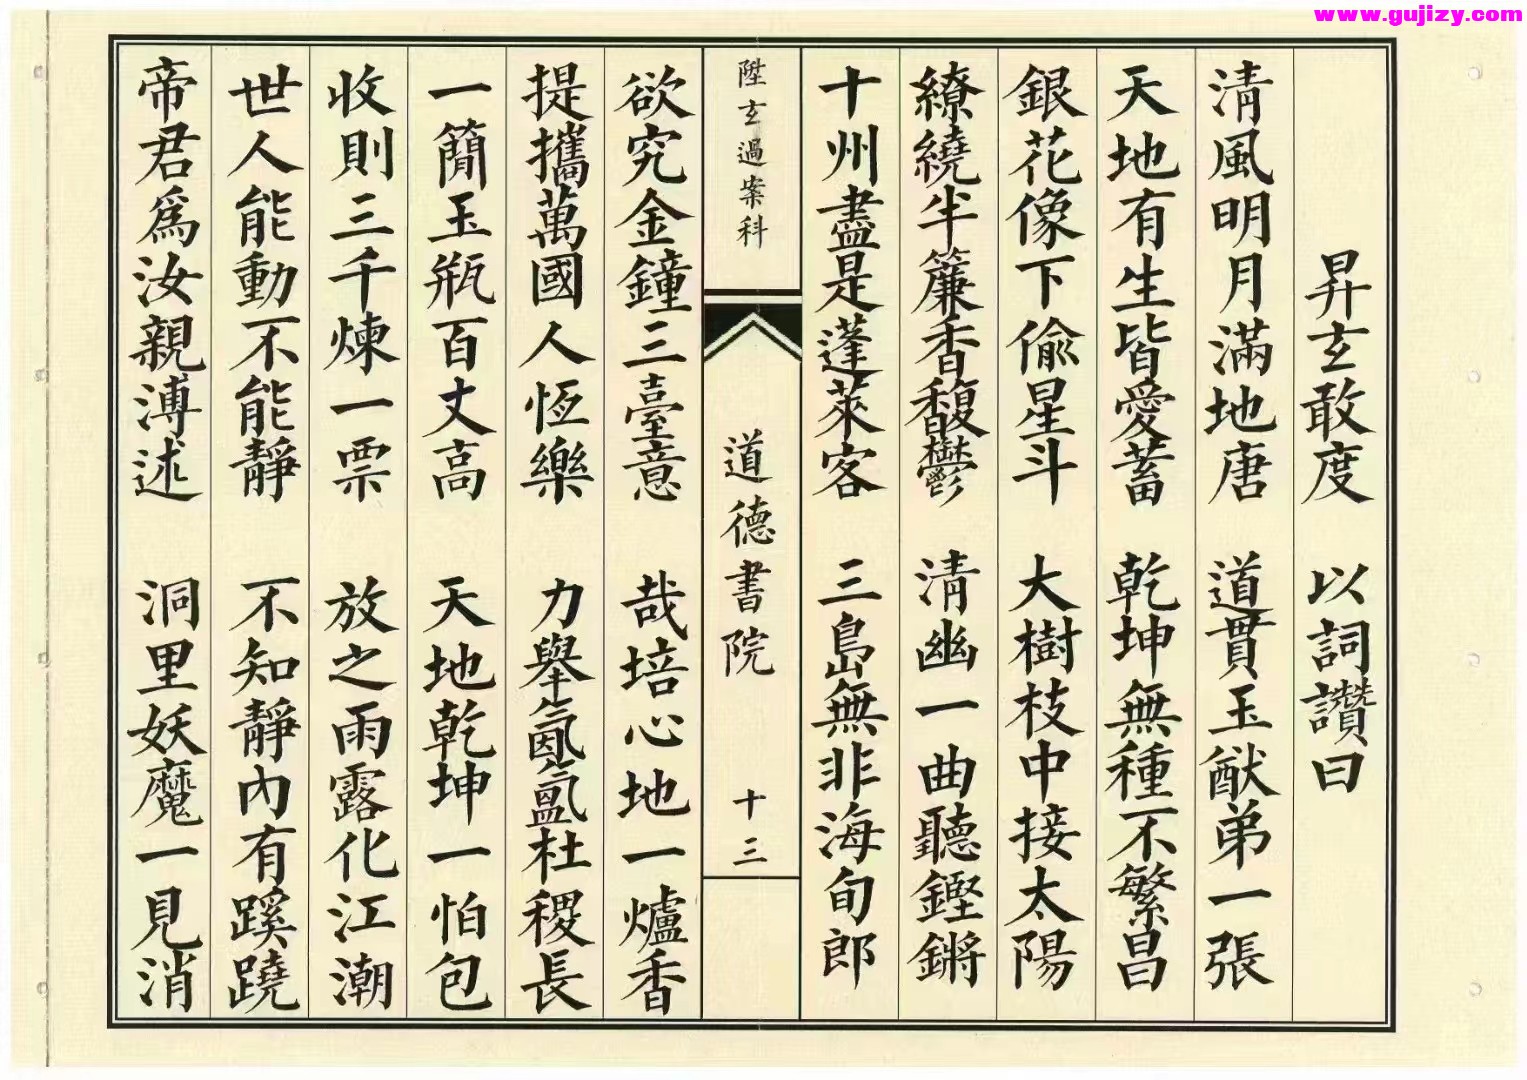 www.gujizy.com
昇玄敢度 以詞讚曰
清風明月滿地唐 道貫玉猷弟一張
天地有生皆愛蓄 乾坤無種不繁昌
銀花像下偸星斗 大樹枝中接太陽
繚繞半簾香馥鬱 清幽一曲聽鏗鏘
十州盡是蓬萊客 三島無非海旬郎
陞玄過案科 道德書院 十三
欲究金鐘三臺意 哉培心地一爐香
提攜萬國人恆樂 力舉氤氳杜稷長
一簡玉瓶百丈高 天地乾坤一怕包
收則三千煉一票 放之雨露化江潮
世人能動不能靜 不知靜內有蹊蹺
帝君爲汝親溥述 洞里妖魔一見消